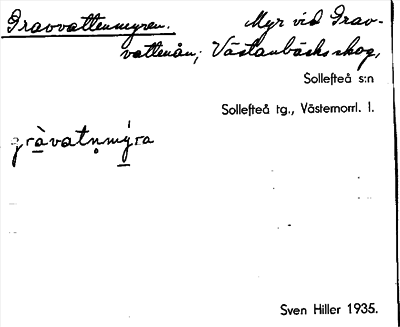 Gravvattenmyren. Myr vid Grav-
vattenån; Västanbäcks skog,
Sollefteå s:n
Sollefteå tg., Västernorrl. l.
gràvatnmýra
Sven Hiller 1935.